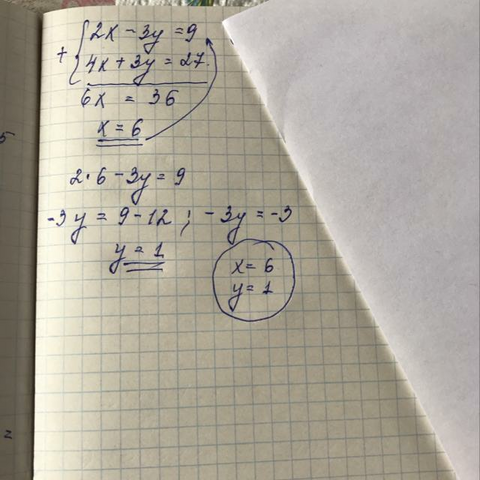 2x - 3y = 9
+
4x + 3y = 27.
6x = 36
x = 6
2·6 - 3y = 9
-3y = 9 - 12 ; -3y = -3
y = 1
x = 6
y = 1
5
=